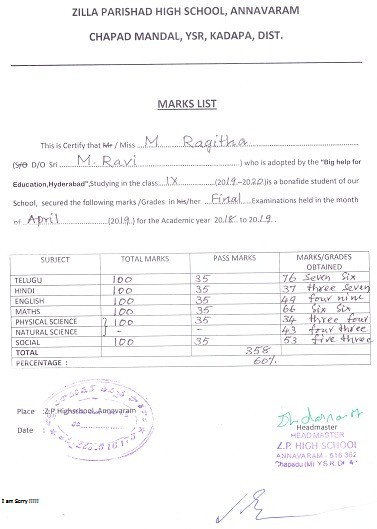 ZILLA PARISHAD HIGH SCHOOL, ANNAVARAM
CHAPAD MANDAL, YSR, KADAPA, DIST.
MARKS LIST
This is Certify that Mr / Miss M Ragitha
(S/O D/O Sri M. Ravi ) who is adopted by the "Big help for
Education,Hyderabad",Studying in the class IX (2019-2020)is a bonafide student of our
School, secured the following marks /Grades in his/her Final Examinations held in the month
of April (2019) for the Academic year 2018 to 2019.
SUBJECT TOTAL MARKS PASS MARKS MARKS/GRADES OBTAINED
TELUGU 100 35 76 Seven Six
HINDI 100 35 37 three seven
ENGLISH 100 35 49 four nine
MATHS 100 35 66 Six Six
PHYSICAL SCIENCE } 100 35 34 three four
NATURAL SCIENCE - - 43 four three
SOCIAL 100 35 53 five three
TOTAL 358
PERCENTAGE : 60%
Place :Z.P.Highschool, Annavaram
Date
Headmaster
HEAD MASTER
Z.P. HIGH SCHOOL
ANNAVARAM - 516 362
Chapadu (M) Y.S.R.
I am Sorry !!!!!